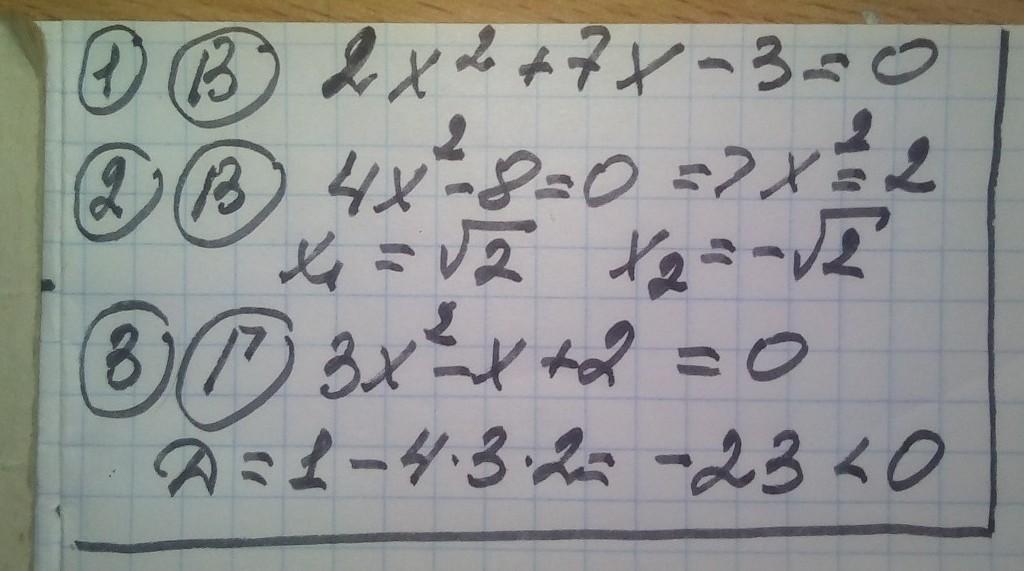 ① Ⓑ 2x² + 7x - 3 = 0
② Ⓑ 4x² - 8 = 0 => x² = 2
x₁ = √2 x₂ = -√2
③ Ⓖ 3x² - x + 2 = 0
D = 1 - 4·3·2 = -23 < 0